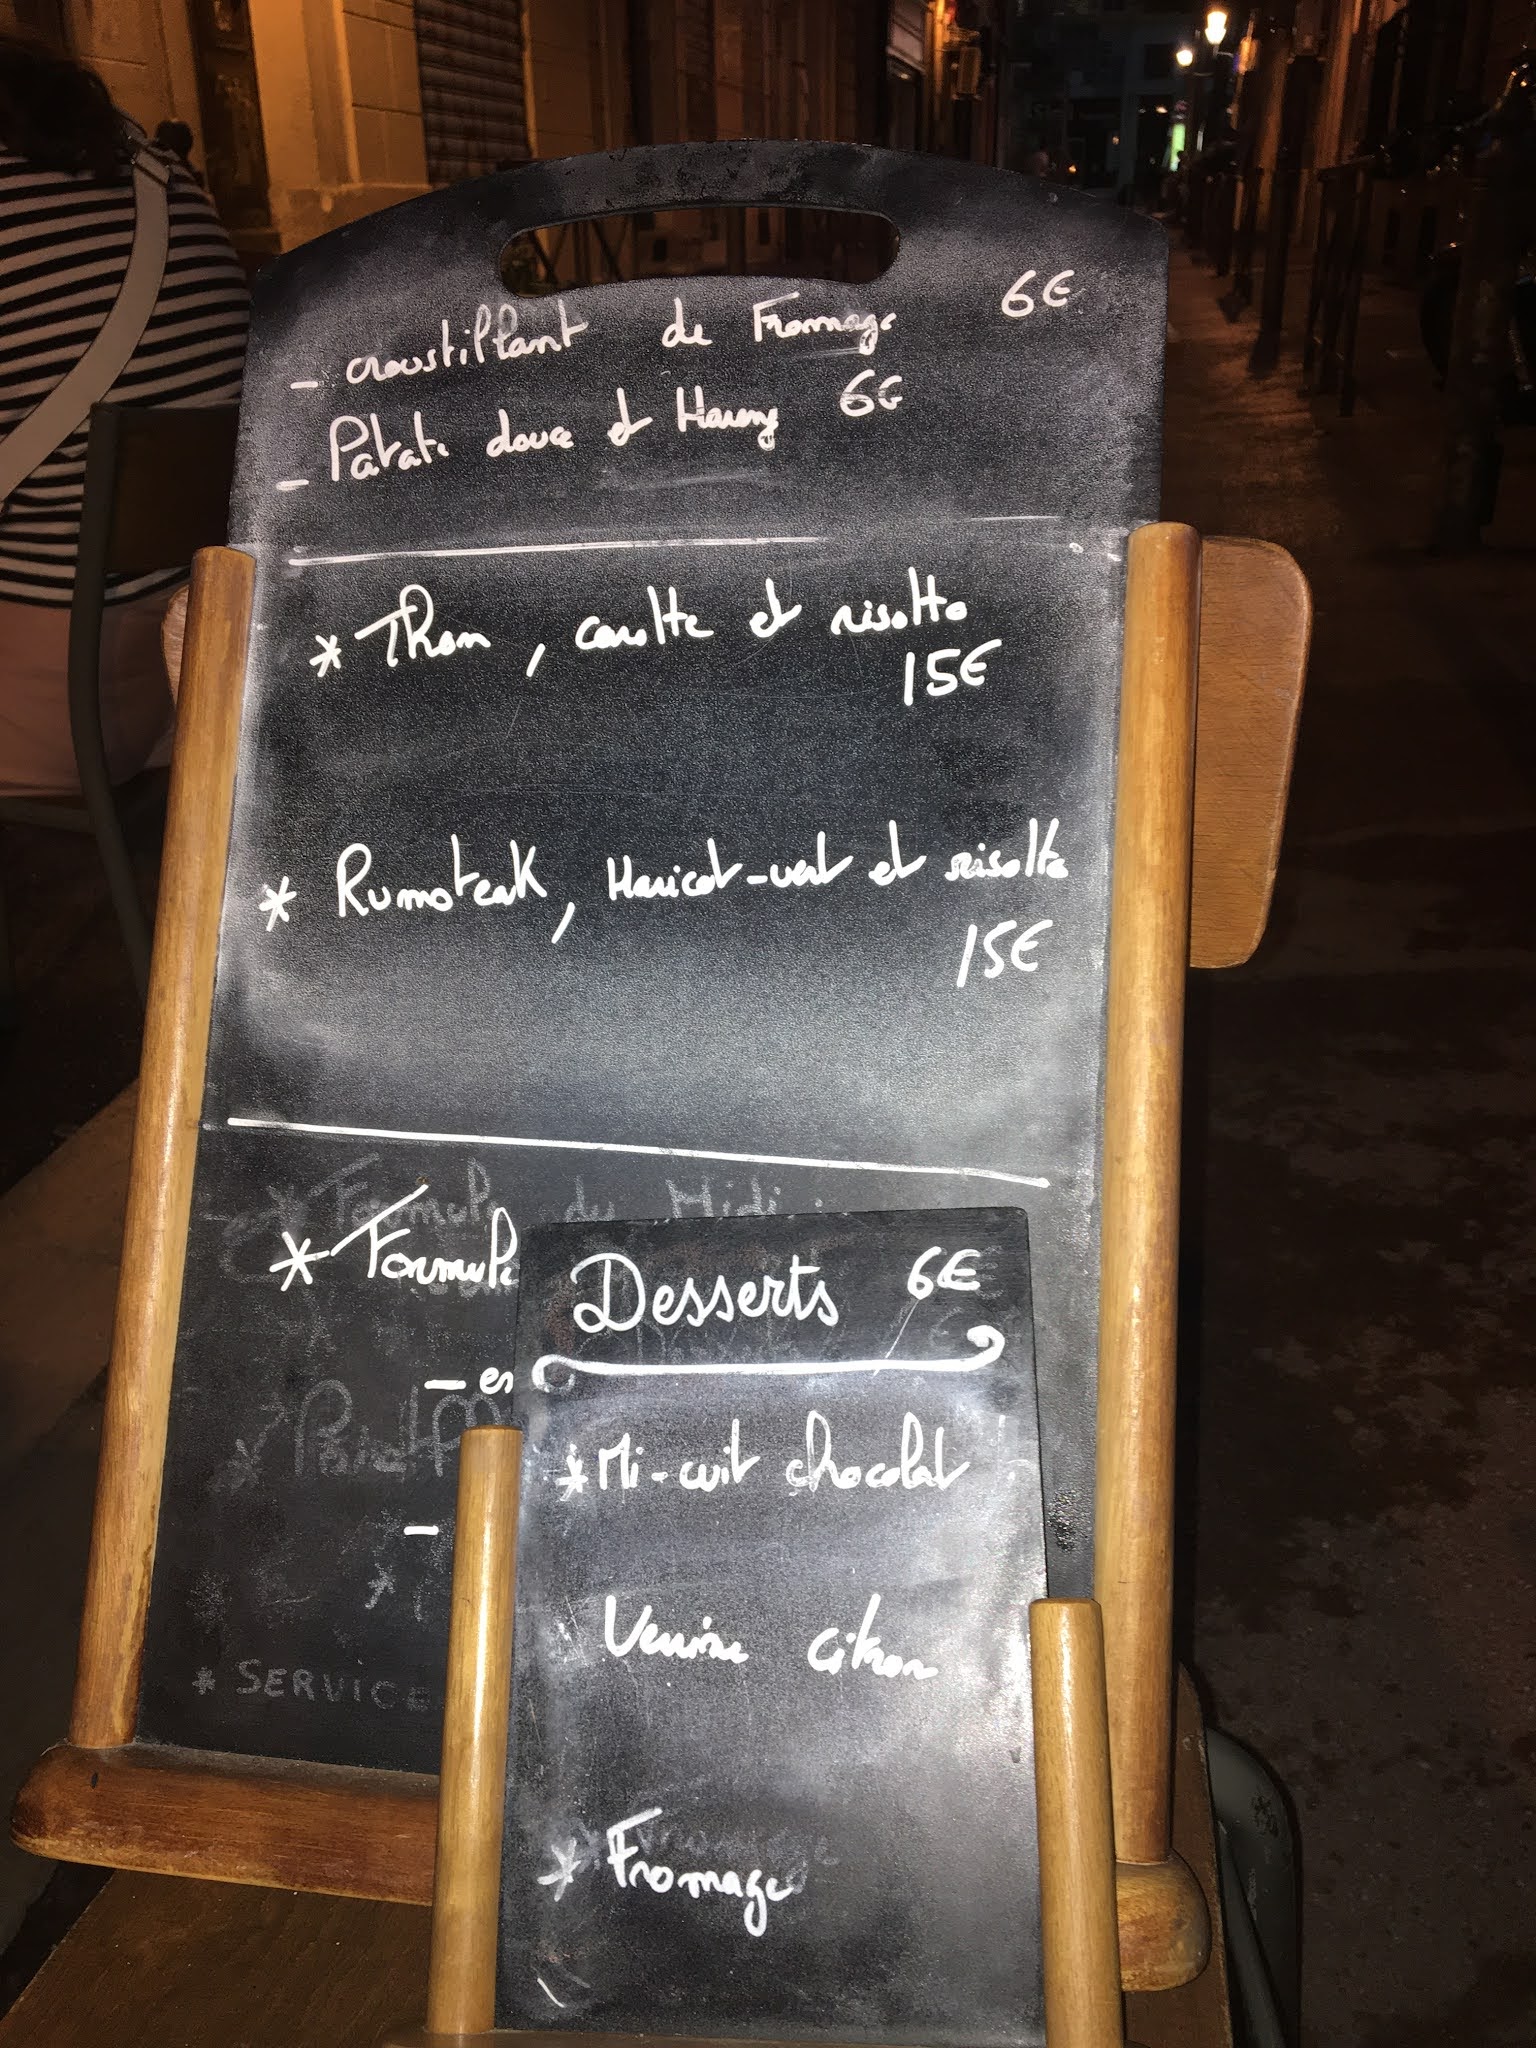 - croustillant de Fromage 6€
- Patate douce et Hareng 6€
* Thon, carotte et risotto
15€
* Rumsteak, Haricot-vert et risotto
15€
Formule du Midi :
* Formule
- en
-
* SERVICE
Desserts 6€
* Mi-cuit chocolat
Verrine citron
* Fromage